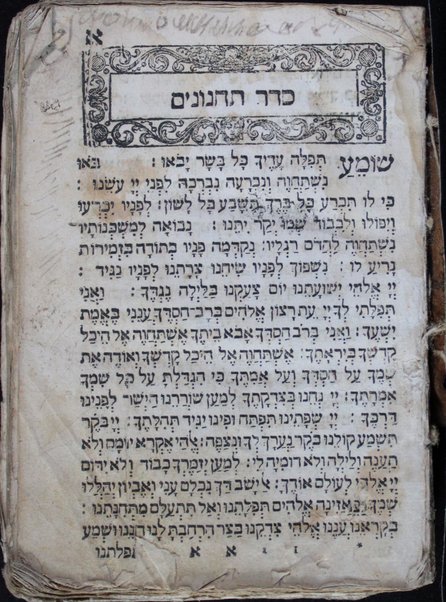 א
סדר תחנונים
שׁוֹמֵעַ תְּפִלָּה עָדֶיךָ כָּל בָּשָׂר יָבֹאוּ : בֹּאוּ
נִשְׁתַּחֲוֶה וְנִכְרָעָה נִבְרְכָה לִפְנֵי יְיָ עֹשֵׂנוּ :
כִּי לוֹ תִכְרַע כָּל בֶּרֶךְ תִּשָּׁבַע כָּל לָשׁוֹן : לְפָנָיו יִכְרְעוּ
וְיִפּוֹלוּ וְלִכְבוֹד שְׁמוֹ יְקָר יִתֵּנוּ : נָבוֹאָה לְמִשְׁכְּנוֹתָיו
נִשְׁתַּחֲוֶה לַהֲדֹם רַגְלָיו : נְקַדְּמָה פָנָיו בְּתוֹדָה בִּזְמִירוֹת
נָרִיעַ לוֹ : נִשְׁפּוֹךְ לְפָנָיו שִׂיחֵנוּ צָרָתֵנוּ לְפָנָיו נַגִּיד :
יְיָ אֱלֹהֵי יְשׁוּעָתֵנוּ יוֹם צָעַקְנוּ בַּלַּיְלָה נֶגְדֶּךָ : וַאֲנִי
תְפִלָּתִי לְךָ יְיָ עֵת רָצוֹן אֱלֹהִים בְּרָב חַסְדֶּךָ עֲנֵנִי בֶּאֱמֶת
יִשְׁעֶךָ : וַאֲנִי בְּרֹב חַסְדְּךָ אָבֹא בֵיתֶךָ אֶשְׁתַּחֲוֶה אֶל הֵיכַל
קָדְשְׁךָ בְּיִרְאָתֶךָ : אֶשְׁתַּחֲוֶה אֶל הֵיכַל קָדְשְׁךָ וְאוֹדֶה אֶת
שְׁמֶךָ עַל חַסְדְּךָ וְעַל אֲמִתֶּךָ כִּי הִגְדַּלְתָּ עַל כָּל שִׁמְךָ
אִמְרָתֶךָ : יְיָ נְחֵנוּ בְצִדְקָתֶךָ לְמַעַן שׁוֹרְרֵנוּ הַיְשַׁר לְפָנֵינוּ
דַּרְכֶּךָ : יְיָ שְׂפָתֵינוּ תִּפְתַּח וּפִינוּ יַגִּיד תְּהִלָּתֶךָ : יְיָ בֹּקֶר
תִּשְׁמַע קוֹלֵנוּ בֹּקֶר נַעֲרָךְ לְךָ וּנְצַפֶּה : אֱלֹהַי אֶקְרָא יוֹמָם וְלֹא
תַעֲנֶה וְלַיְלָה וְלֹא דוּמִיָּה לִי : לְמַעַן יְזַמֶּרְךָ כָבוֹד וְלֹא יִדּוֹם
יְיָ אֱלֹהַי לְעוֹלָם אוֹדֶךָּ : אַל יָשׁוֹב דַּךְ נִכְלָם עָנִי וְאֶבְיוֹן יְהַלְלוּ
שְׁמֶךָ : הַאֲזִינָה אֱלֹהִים תְּפִלָּתֵנוּ וְאַל תִּתְעַלַּם מִתְּחִנָּתֵנוּ :
בְּקָרְאֵנוּ עֲנֵנוּ אֱלֹהֵי צִדְקֵנוּ בַּצָּר הִרְחַבְתָּ לָנוּ חָנֵּנוּ וּשְׁמַע
* ו י א א תפלתנו